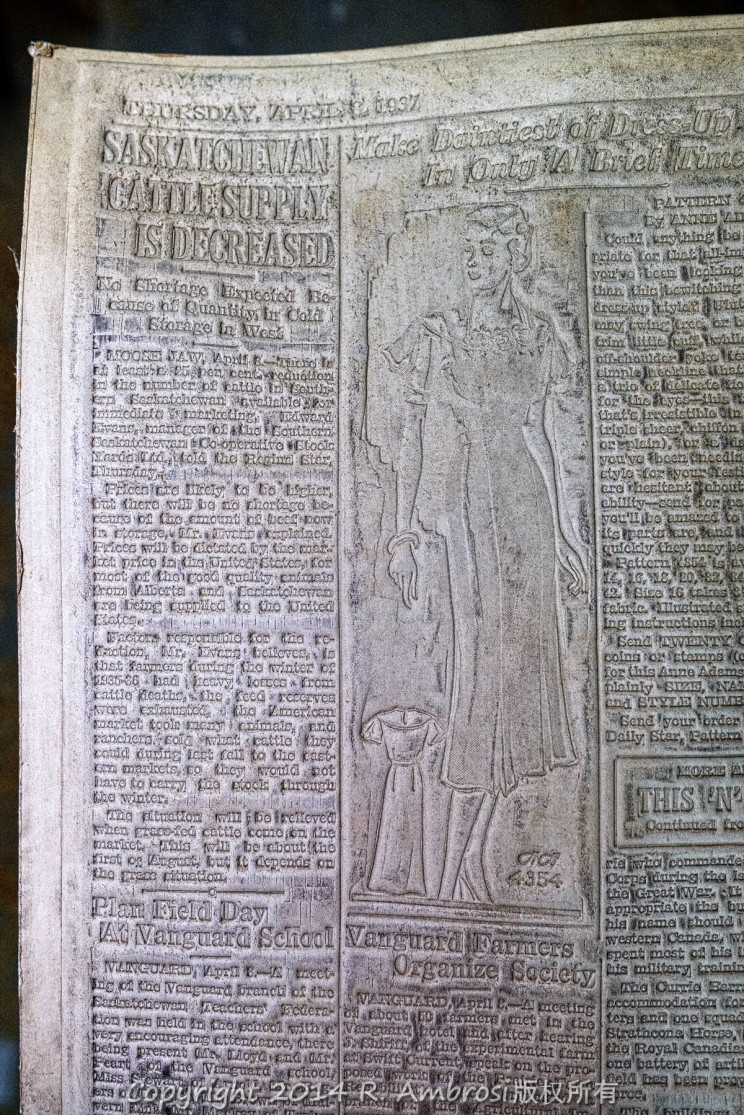 THURSDAY, APRIL 1937
SASKATCHEWAN
CATTLE SUPPLY
IS DECREASED
No Shortage Expected Be-
cause of Quantity in Cold
Storage in West
MOOSE JAW, April 8.—There is
at least a 25 per cent. reduction
in the number of cattle in South-
ern Saskatchewan available for
immediate marketing, Edward
Evans, manager of the Southern
Saskatchewan Co-operative Stock
Yards Ltd., told the Regina Star,
Thursday.
Prices are likely to be higher,
but there will be no shortage be-
cause of the amount of beef now
in storage, Mr. Evans explained.
Prices will be dictated by the mar-
ket price in the United States, for
most of the good quality animals
from Alberta and Saskatchewan
are being supplied to the United
States.
Factors responsible for the re-
duction, Mr. Evans believes, is
that farmers during the winter of
1935-36 had heavy losses from
cattle deaths, the feed reserves
were exhausted, the American
market took many animals, and
ranchers sold what cattle they
could during last fall to the east-
ern markets, so they would not
have to carry the stock through
the winter.
The situation will be relieved
when grass-fed cattle come on the
market. This will be about the
first of August, but it depends on
the grass situation.
Plan Field Day
At Vanguard School
VANGUARD, April 8.—A meet-
ing of the Vanguard branch of the
Saskatchewan Teachers' Federa-
tion was held in the school with a
very encouraging attendance, there
being present Mr. Lloyd and Mr.
Peart of the Vanguard school,
Miss Stewart
Make Daintiest of Dress-Up
In Only A Brief Time
4354
Vanguard Farmers
Organize Society
VANGUARD, April 8.—A meeting
of about 50 farmers met in the
Vanguard hotel and after hearing
S. Shirriff of the experimental farm
at Swift Current, speak on the pro-
posed work of the
PATTERN 4
By ANNE AD
Could anything be
priate for that all-im
you've been looking
than this bewitching
dress-up style! Flut
may swing free or b
trim little cuff, while
off-shoulder yoke ter
simple neckline that
a trio of delicate ro
for the eyes—this
that's irresistible in
triple sheer, chiffon
or plain), for 'tis j
you've been needi
style for your fest
are hesitant about
ability—send for pa
you'll be amazed to
its parts are, and
quickly they may be
Pattern 4354 is av
14, 16, 18, 20, 32, 34
42. Size 16 takes 3
fabric. Illustrated s
ing instructions inc
Send TWENTY C
coins or stamps (c
for this Anne Adams
plainly SIZE, NA
and STYLE NUMB
Send your order
Daily Star, Pattern
MORE A
THIS 'N'
Continued fro
rie who commande
Corps during the la
the Great War. It
appropriate the bu
his name should
western Canada, w
spent most of his l
his military traini
The Currie Barr
accommodation for
ters and one squad
Strathcona Horse,
the Royal Canadia
one battery of artil
field has been prov
prox.
Copyright 2014 R. Ambrosi版权所有